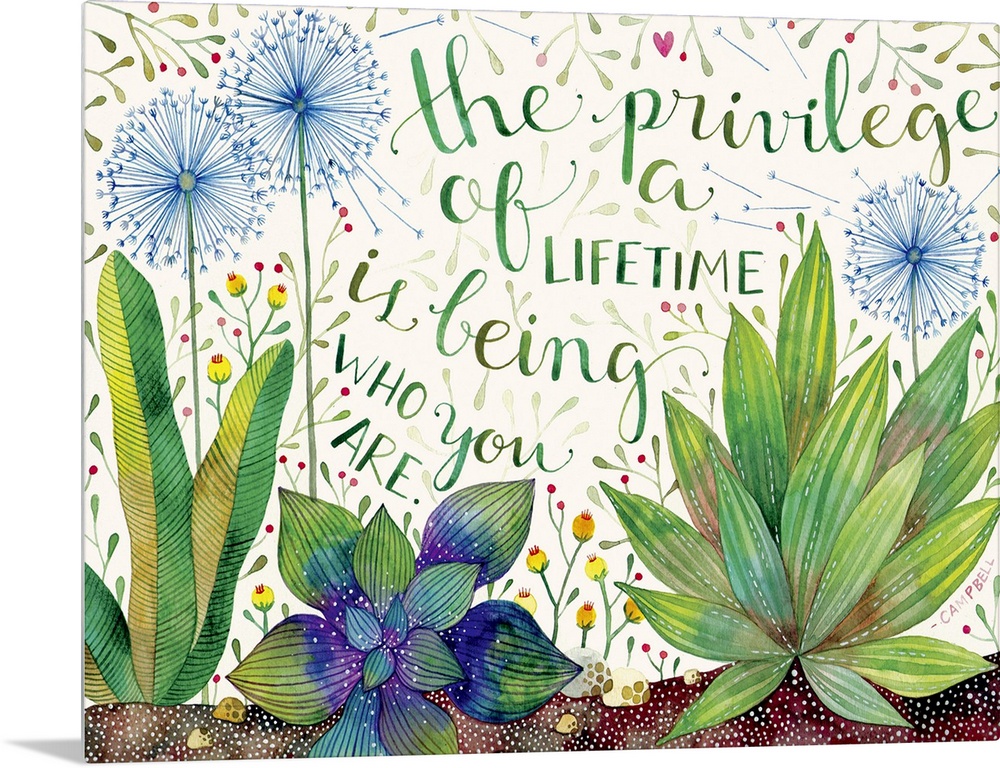 the privilege
of a
LIFETIME
is being
WHO you
ARE.
-CAMPBELL